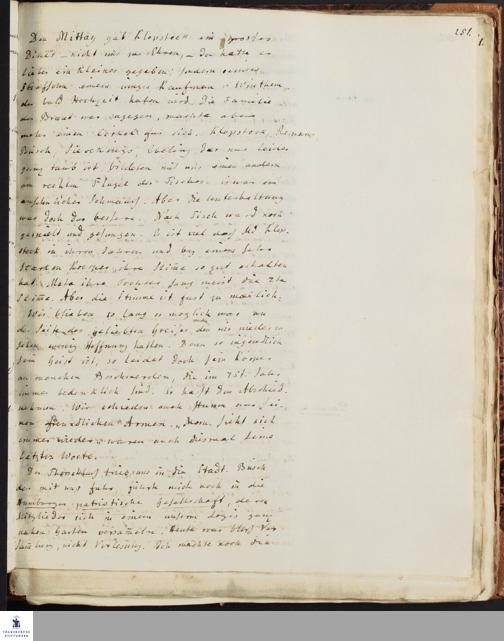 251.
Den Mittag gab Klopstock ein großes
Diné – nicht uns zu Ehren, – da hatte er
lieber ein kleines gegeben, sondern seines
Stiefsohn eines jungen Kaufmann v. Winthem,
der bald Hochzeit haben wird. Die Familie
der Braut war zugegen, machte aber
mehr einen Cirkel für sich. Klopstock, Reimarus
Büsch, Ebeling der nur leider
ganz taub ist, bildeten mit uns einen andern
am rechten Flügel des Tisches. Es war ein
ansehnlicher Schmaus. Aber die Unterhaltung
war doch das bessere. Nach Tisch ward noch
gespielt und gesungen. Es ist viel daß Md. Klop-
stock in ihren Jahren und bey einem sehr
starken Koerper, ihre Stime so gut erhalten
hat. Meta ihre Tochter sang meist die 2te
Stime. Aber die Stimme ist fast zu mänlich.
Wir blieben so lang es möglich war an
der Seite des geliebten Greises, den wir wieder zu
sehen wenig Hoffnung hatten. Denn so jugendlich
sein Geist ist, so leidet doch sein Körper
an manchen Beschwerden, die im 75t. Jahr
immer bedenklich sind. Er haßt das Abschied-
nehmen. Wir schieden auch stumm aus sei-
nen freundlichen Armen. „Man sieht sich
immer wieder“ waren auch diesmal seine
letzten Worte.
Der Thorschluß trieb uns in die Stadt. Büsch
der mit uns fuhr, führte mich noch in die
Hamburger patriotische Gesellschaft, deren
Mitglieder sich in einem unserm Logis ganz
nahen Garten versameln. Heute war bloß Ver-
samlung, nicht Vorlesung. Ich machte noch die
FRANCKESCHE
STIFTUNGEN